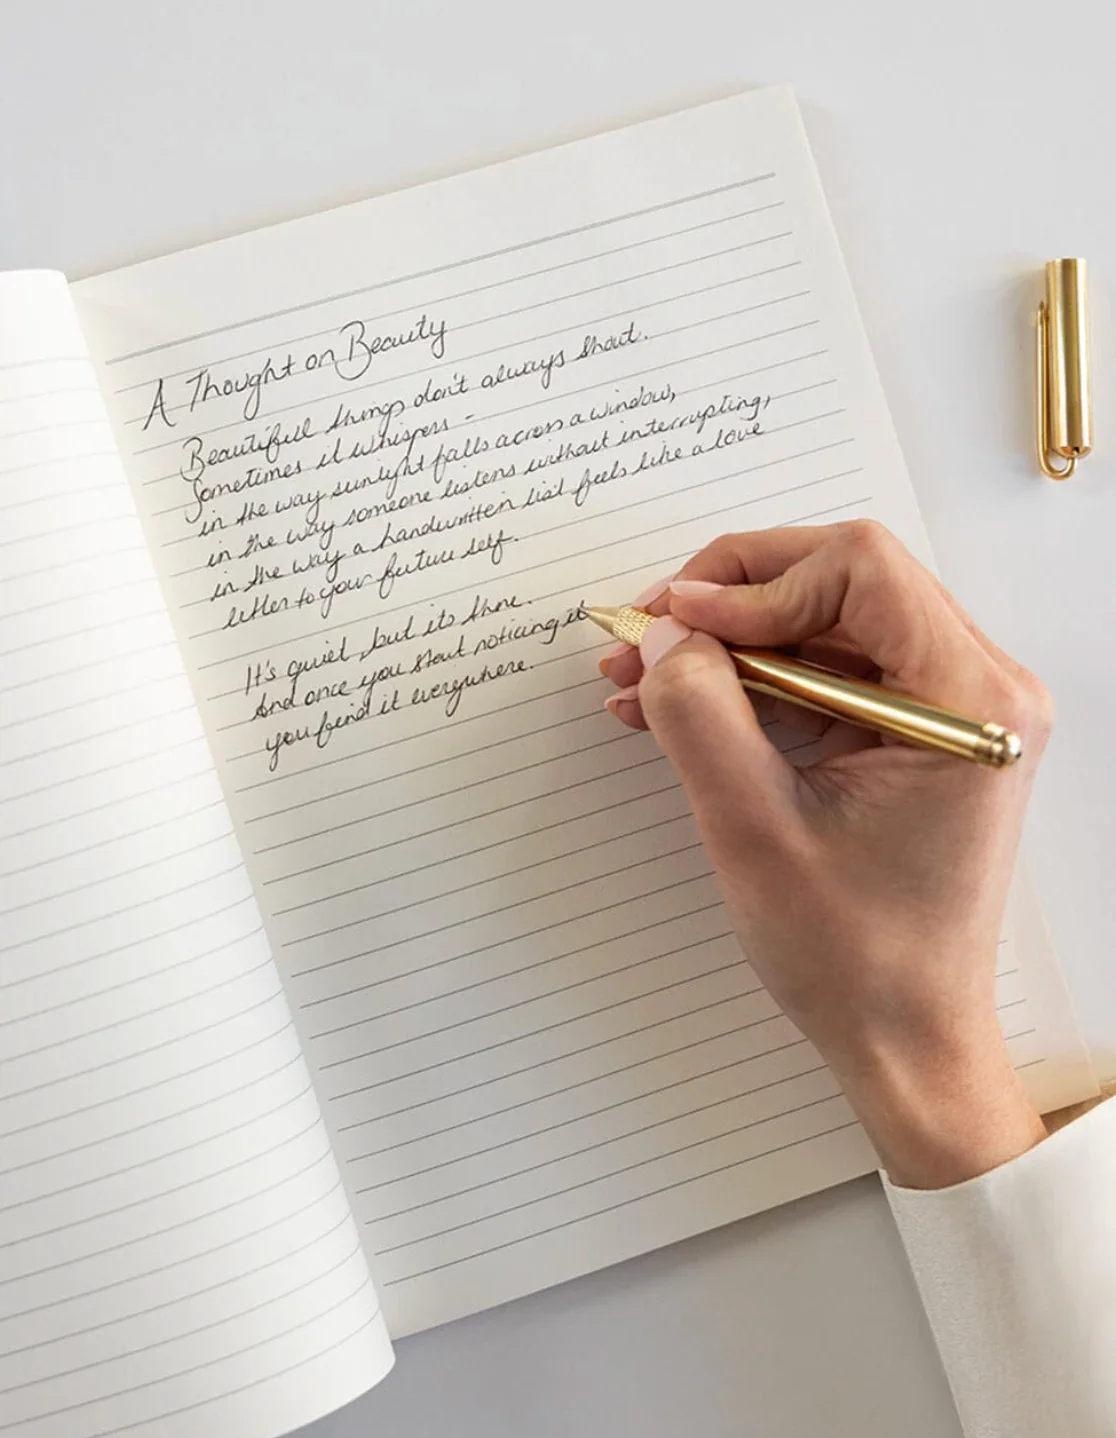 A Thought on Beauty
Beautifull things don't always shout.
Sometimes it whispers -
in the way sunlight falls across a window,
in the way someone listens without interrupting,
in the way a handwritten list feels like a love
letter to your future self.
It's quiet, but its there.
And once you start noticing it
you find it everywhere.